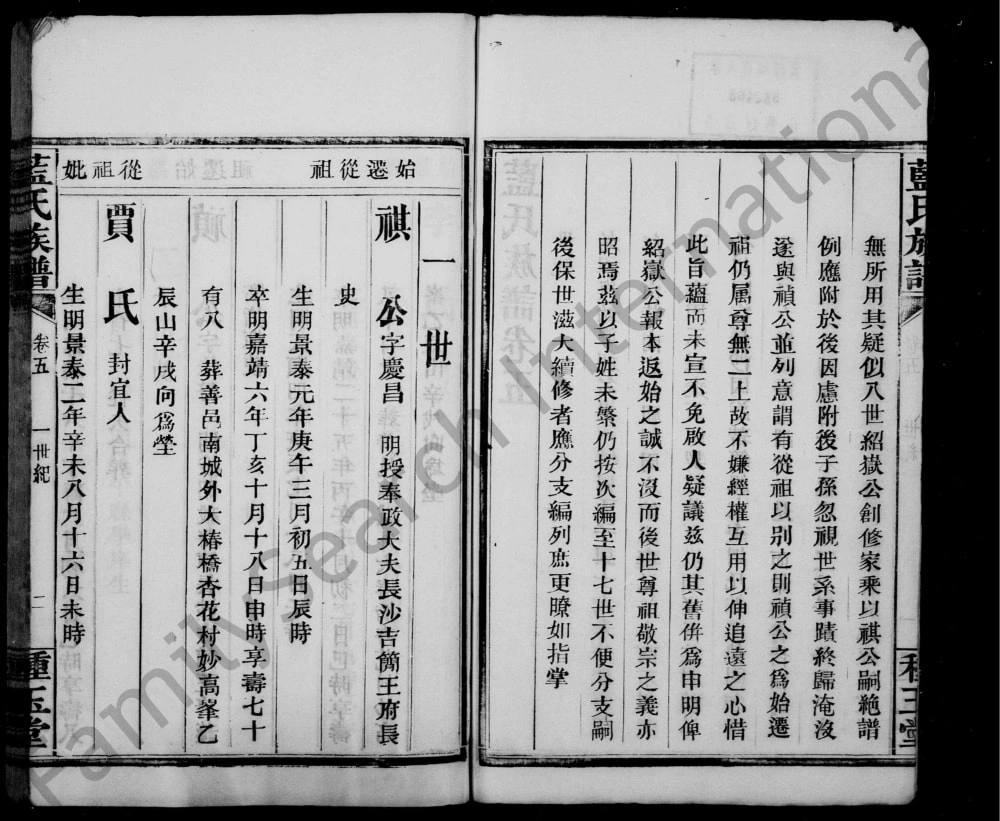 藍氏族譜
種玉堂
無所用其疑似八世紹嶽公創修家乘以祺公嗣絶譜
例應附於後因慮附後子孫忽視世系事蹟終歸淹沒
遂與禎公並列意謂有從祖以別之則禎公之爲始遷
祖仍属尊無二上故不嫌經權互用以伸追遠之心惜
此旨蘊而未宣不免啟人疑議兹仍其舊倂爲申明俾
紹嶽公報本返始之誠不沒而後世尊祖敬宗之義亦
昭焉兹以子姓未繁仍按次編至十七世不便分支嗣
後保世滋大續修者應分支編列庶更瞭如指掌
始遷從祖
一世
祺公字慶昌 明授奉政大夫長沙吉簡王府長
史
生明景泰元年庚午三月初五日辰時
卒明嘉靖六年丁亥十月十八日申時享壽七十
有八 葬善邑南城外大椿橋杏花村妙高峯乙
辰山辛戌向爲塋
從祖妣
賈氏 封宜人
生明景泰二年辛未八月十六日未時
藍氏族譜 卷五 一世紀 二 種玉堂
FamilySearch International